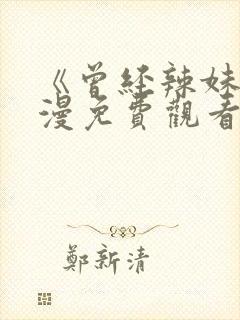 《曾经辣妹
漫免費觀看
鄭新清